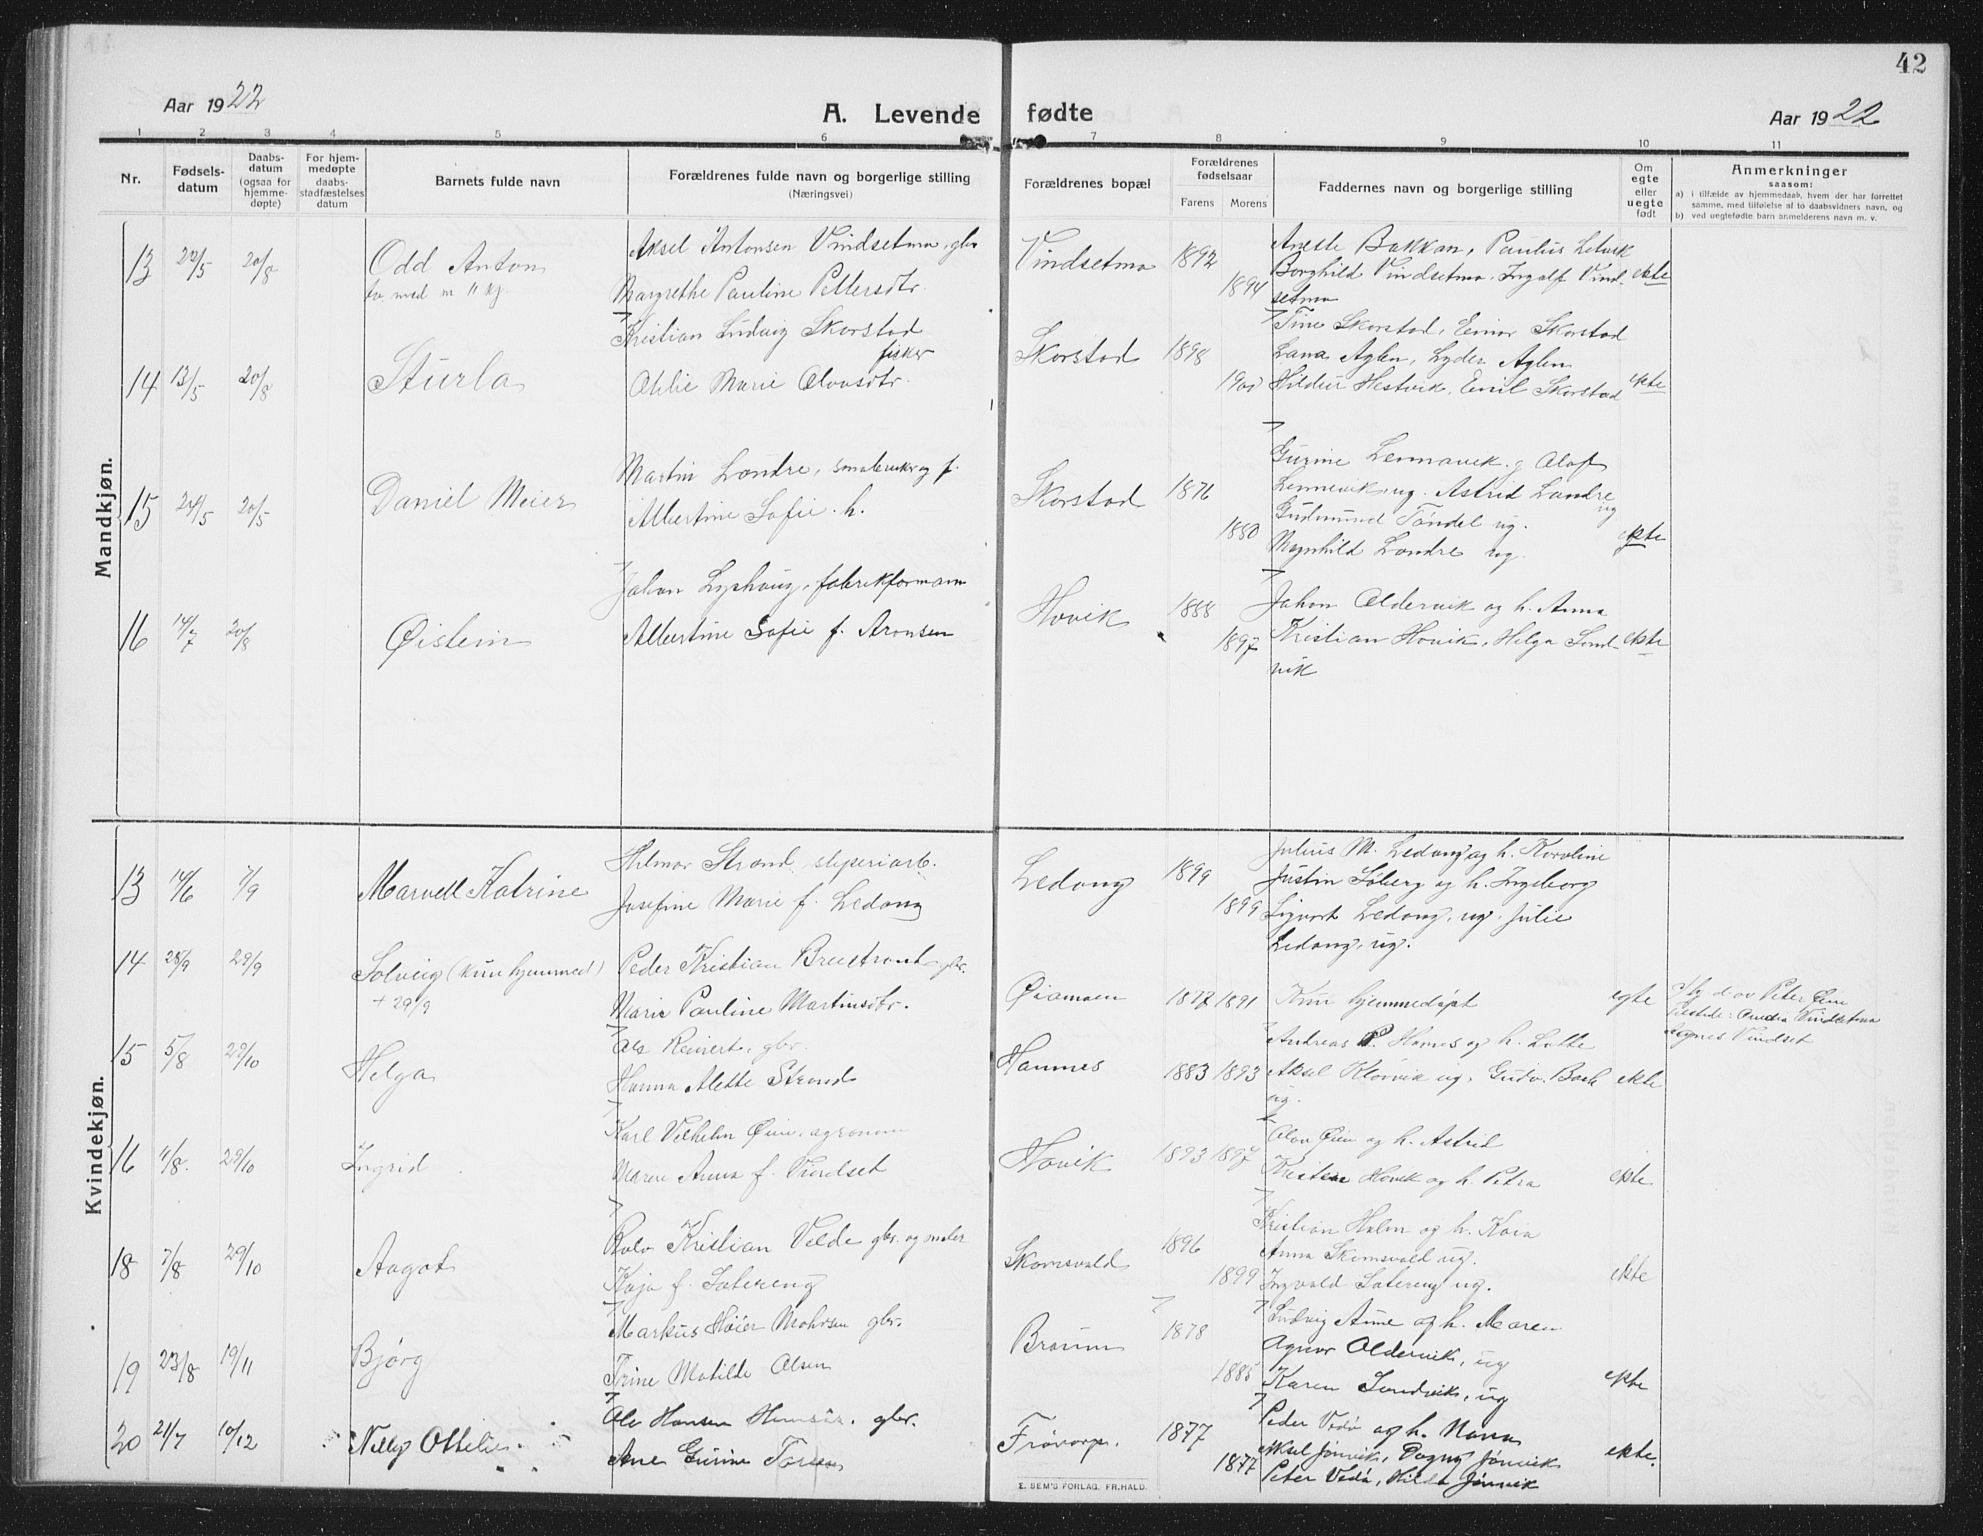 42
Aar 1922
A. Levende fødte
Aar 1922
1 2 3 4 5 6 7 8 9 10 11
Nr.
Fødsels-
datum
Daabs-
datum
(ogsaa for
hjemme-
døpte)
For hjem-
medøpte
daabs-
stadfæstelses
datum
Barnets fulde navn
Forældrenes fulde navn og borgerlige stilling
(Næringsvei)
Forældrenes bopæl
Forældrenes
fødselsaar
Farens Morens
Faddernes navn og borgerlige stilling
Om
egte
eller
uegte
født
Anmerkninger
saasom:
a) i tilfælde av hjemmedaab, hvem der har forrettet
samme, med tilføielse af to daabsvidners navn, og
b) ved uegtefødte barn anmelderens navn m. v.
Mandkjøn.
13 22/5 20/8 Odd Anton
Aksel Antonsen Vindsetmo, gbr
Margrethe Pauline Pettersdtr.
Vindsetmo 1892 1894
Bakkan, Paulus
Borghild Vindsetmo, Ingolf Vind-
setmo
ekte
14 13/5 20/8 Sturla
Kristian Ludvig Skorstad
fisker
Otilie Marie Olausdtr.
Skorstad 1898 1900
Tine Skorstad, Einar Skorstad
Lana Aglen, Lyder Aglen
Hildur Hestvik, Emil Skorstad
ekte
15 24/5 20/5 Daniel Meier
Martin Londre, smaabruker og f.
Albertine Sofie h.
Skorstad 1876 1880
Gurine Lennavik g Olaf
Lennevik ug. Astrid Landre
ug
Gudmund Tøndel ug.
Magnhild Londre ug.
ekte
16 14/7 20/8 Øistein
Johan Lyshaug, fabrikformann
Albertine Sofie f. Aronsen
Hovik 1888 1897
Johan Oldervik og h. Anna
Kristian Hovik, Helga Sand-
vik
ekte
Kvindekjøn.
13 14/6 7/9 Marvell Katrine
Hilmar Strand, slyperiarb.
Josefine Marie f. Ledang
Ledang 1899 1899
Julius M. Ledang og h. Karoline
Justin Søberg og h. Ingeborg
Sigvart Ledang, ug, Julie
Ledang, ug.
14 28/9 29/9 Solveig (kun hjemmed)
+ 29/9
Peder Kristian Breistrand gbr.
Marie Pauline Martinsdtr.
Øiamoen 1877 1891
Kun hjemmedøpt
egte
d. av Peter Øien
Tilstede: Vindsetmo
Agnes Vindset
15 5/8 29/10 Helga
Ole Reinert, gbr.
Hanna Alette Strand
Hamnes 1883 1893
Andreas P. Hamnes og h. Lotte
Aksel Klørvik ug. Gudv. Bach
ug.
ekte
16 4/8. 29/10 Ingrid
Karl Vilhelm Øien, agronom
Maren Anna f. Vindset
Hovik 1893 1897
Olav Øien og h. Astrid
Kristian Hovik og h. Petra
ekte
18 7/8 29/10 Aagot
Rolv Kristian Velde gbr. og maler
Kaja f. Sætereng
Skomsvold 1896 1899
Kristian Holm og h. Kaia
Anna Skomsvold ug.
Ingvald Sætereng ug.
ekte
19 23/8 19/11 Bjørg
Markus Høier Mohrsen gbr.
Trine Matilde Olsen
Braun 1878 1885
Ludvig Aune og h. Maren
Agnar Oldervik, ug
Karen Sandvik, ug
ekte
20 21/7 10/12 Nelly Ottelie
Ole Hansen, gbr.
Ane Gurine
1877 1877
Peder Vedø og h. Nanna
Aksel Jønvik, Dagny Jønvik
Peter Vedø, Hilda Jønvik
ekte.
E. SEM'S FORLAG, FR.HALD.